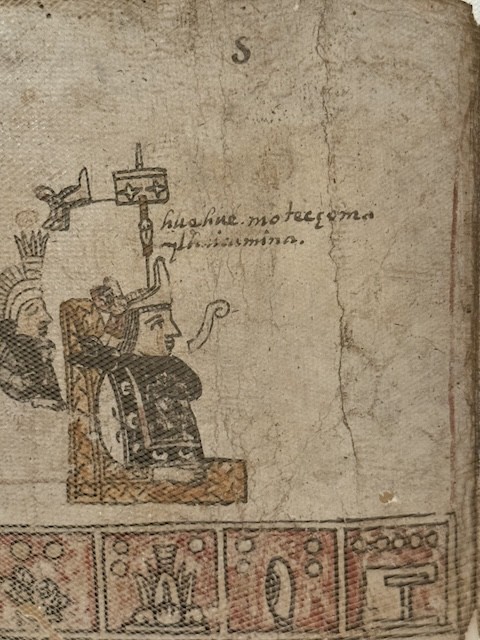 S
huehué. moteecçoma
ylhuicamina.